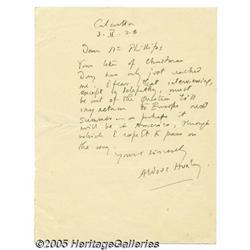 Calcutta
3. II. 26
Dear Mr Phillips
Your letter of Christmas
Day has only just reached
me. I fear that interviewing,
except by telepathy, must
be out of the question till
my return to Europe next
summer – or perhaps it
will be in America, through
which I expect to pass on
the way.
Yours sincerely
Aldous Huxley
©2005 HeritageGalleries